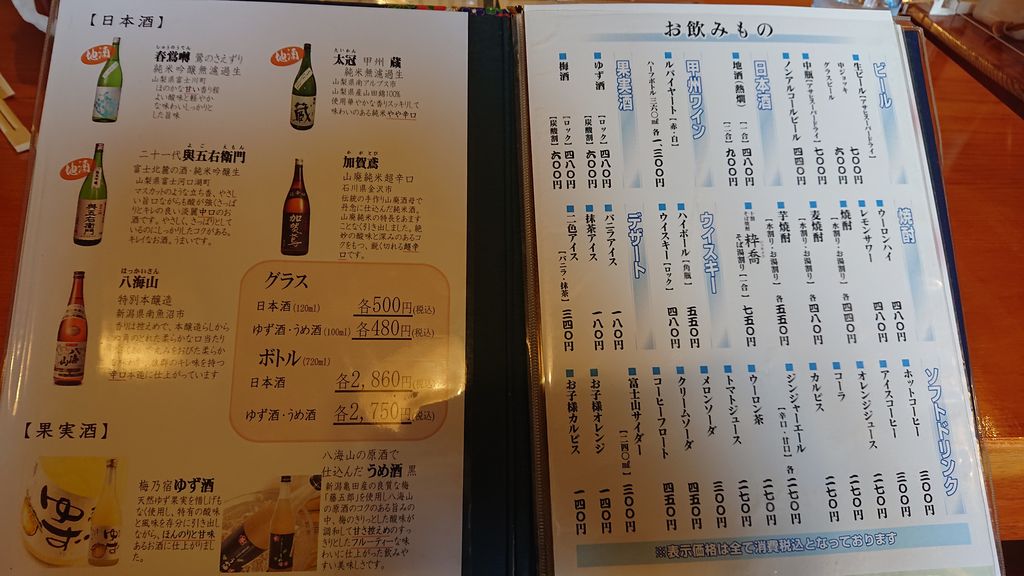 【日本酒】
地酒
しゅんのうてん
春鶯囀 鶯のさえずり
純米吟醸無濾過生
山梨県富士川町
ほのかな甘い香り程
よい酸味と軽やか
な味わいしっかりと
した旨味
地酒
たいかん
太冠 甲州 蔵
純米無濾過生
山梨県南アルプス市
山梨県産山田錦100%
使用華やかな香りスッキリして
味わいのある純米やや辛口
地酒
よごえもん
二十一代與五右衛門
富士北麓の酒・純米吟醸生
山梨県富士河口湖町
マスカットのような立ち香、やさし
い旨口ながらも酸が強くさっぱ
りとキレの良い淡麗中口のお
酒です。やさしく、さっぱりとして
いるのにしっかりしたコクがある。
キレイなお酒、うまいです。
かがとび
加賀鳶
山廃純米超辛口
石川県金沢市
伝統の手作り山廃酒母で
丹念に仕込んだ純米酒。
山廃純米の特長をあます
ことなく引き出しました。絶
妙の酸味と深みのあるコク
をもつ、鋭く切れる超辛
口です。
はっかいさん
八海山
特別本醸造
新潟県南魚沼市
香りは控えめで、本醸造らしから
辛口本造に仕上がっています
グラス
日本酒(120ml) 各500円(税込)
ゆず酒・うめ酒(100ml) 各480円(税込)
ボトル(720ml)
日本酒 各2,860円(税込)
ゆず酒・うめ酒 各2,750円(税込)
【果実酒】
梅乃宿ゆず酒
天然ゆず果実を惜しげも
なく使用し、特有の酸味
と風味を存分に引き出し
ながら、ほんのりと甘味
あるお酒に仕上がりまし
た。
八海山の原酒で
仕込んだうめ酒 黒
新潟亀田産の良質な梅
「藤五郎」を使用し八海山
の原酒のコクのある旨みの
中、梅のきりっとした酸味が
調和して甘さ控えめのすっ
きりとしたフルーティーな味
わいに仕上がった飲みや
すい美味しさです。
お飲みもの
ビール
生ビール[アサヒスーパードライ]
中ジョッキ 七〇〇円
グラスビール 六〇〇円
中瓶[アサヒスーパードライ] 七〇〇円
ノンアルコールビール 四四〇円
日本酒
地酒[熱燗]
[一合] 四八〇円
[二合] 九〇〇円
甲州ワイン
ルバイヤート[赤・白]
ハーフボトル 三六〇㎖ 各一、三〇〇円
果実酒
ゆず酒
[ロック] 四八〇円
[炭酸割] 六〇〇円
梅酒
[ロック] 四八〇円
[炭酸割] 六〇〇円
焼酎
ウーロンハイ 四八〇円
レモンサワー 四八〇円
焼酎
[水割り・お湯割り] 四四〇円
麦焼酎
[水割り・お湯割り] 各四八〇円
芋焼酎
[水割り・お湯割り] 各五五〇円
そば湯割り[一合] 七五〇円
ウイスキー
ハイボール[角瓶] 五五〇円
ウイスキー[ロック] 四八〇円
デザート
バニラアイス 一八〇円
抹茶アイス 一八〇円
二色アイス[バニラ・抹茶] 三四〇円
ソフトドリンク
ホットコーヒー 三〇〇円
アイスコーヒー 三〇〇円
オレンジジュース 二七〇円
コーラ 二七〇円
カルピス 二七〇円
ジンジャーエール[辛口・甘口] 各二七〇円
ウーロン茶 二七〇円
トマトジュース 二七〇円
メロンソーダ 二七〇円
クリームソーダ 四五〇円
コーヒーフロート 四五〇円
富士山サイダー[二四〇㎖] 三〇〇円
お子様オレンジ 一四〇円
お子様カルピス 一四〇円
※表示価格は全て消費税込となっております